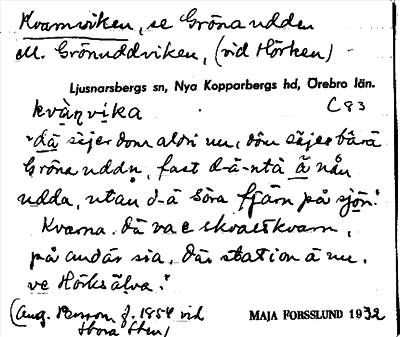 Kvarnviken, se Gröna udden
ell. Grönuddviken, (vid Hörken)
Ljusnarsbergs sn, Nya Kopparbergs hd, Örebro län.
kvànvika C 83
"dä säjer dom aldri nu, dôm säjer bara
Gröna uddn, fast d-ä-ntå ä nån
udda, utan d-ä Söra fjärn på sjön."
Kvarna. Dä va e skvaltkvarn,
på andär sia, där station ä nu.
ve Hörksälva."
(Aug. Persson f. 1854 vid
Stora Sten)
MAJA FORSSLUND 1932